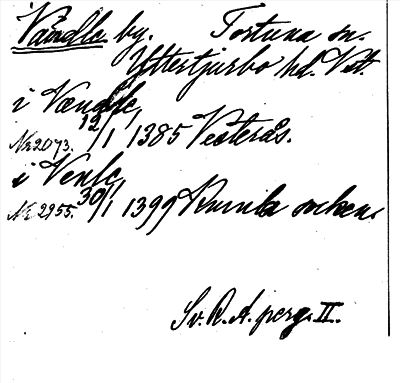 Vändle by. Tortuna sn.
Yttertjurbo hd. Vstm.
i Vændle
№ 2073. 12/1 1385 Vesterås.
i Venle
№ 2955. 30/1 1399 Kumla socken.
Sv. R. A. perg. II.